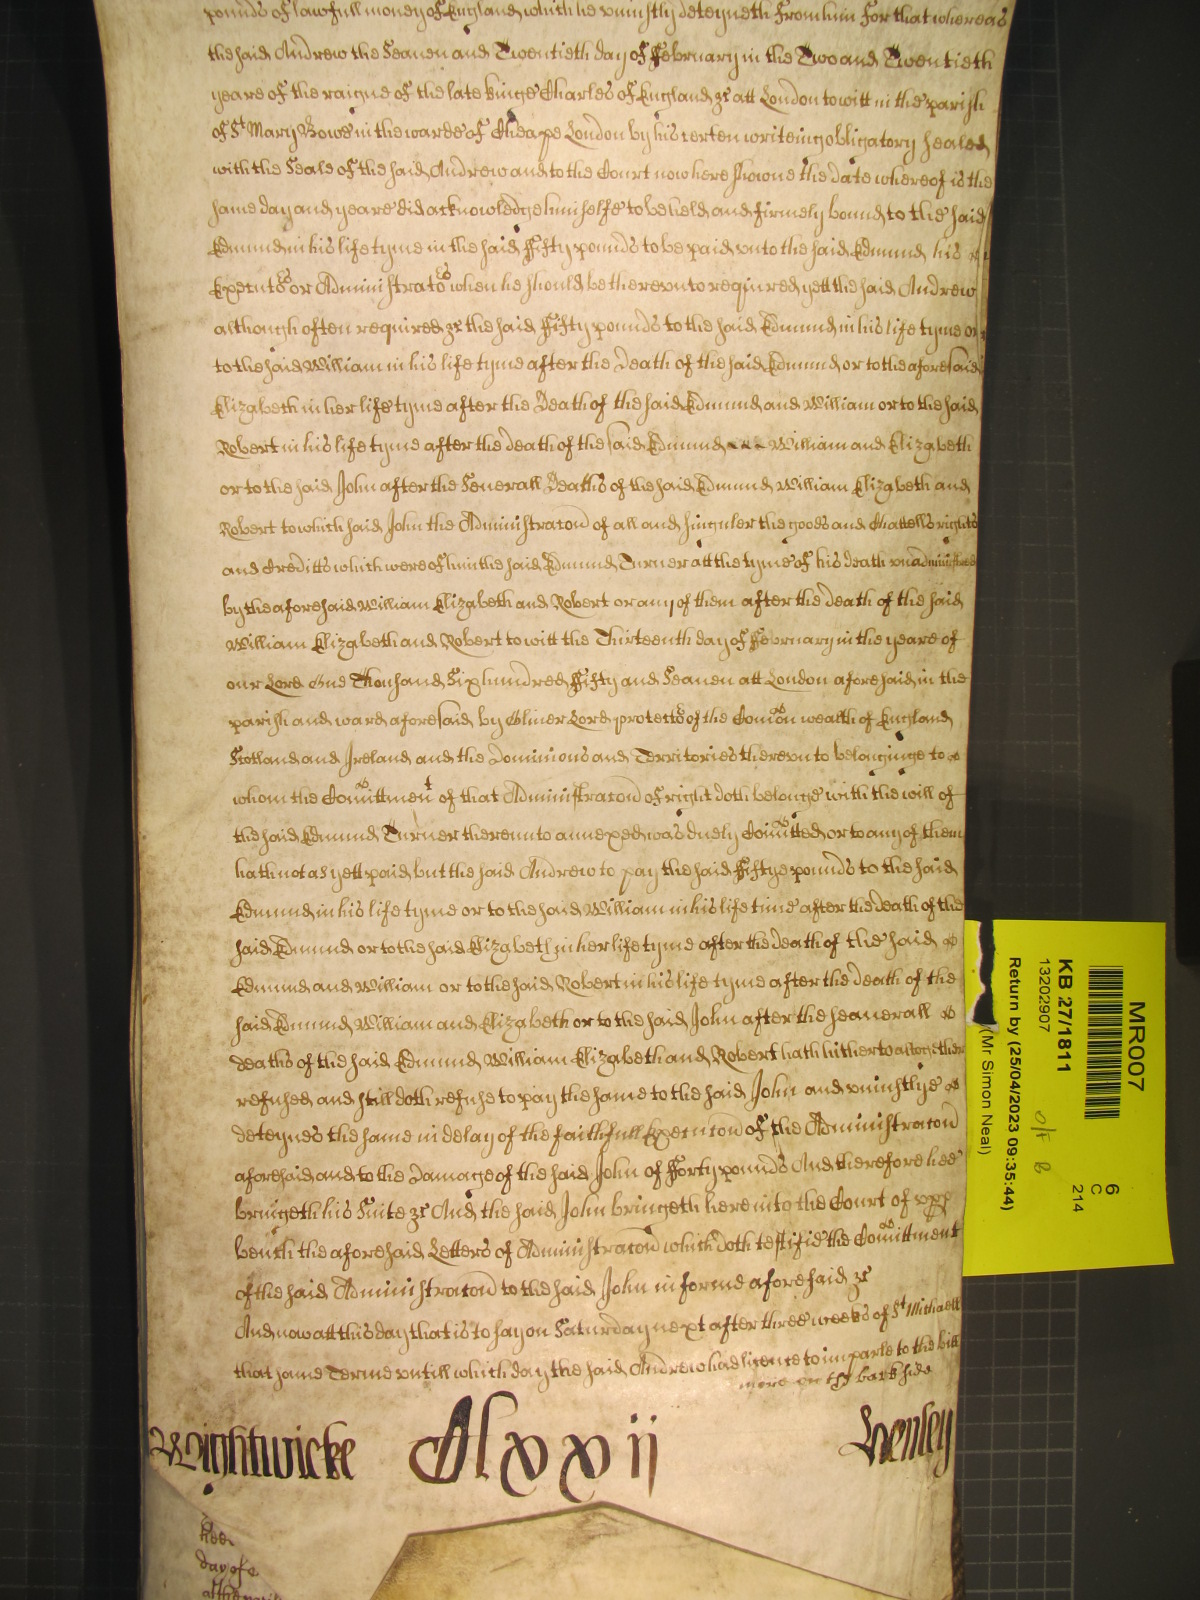 pounds of lawfull money of England which he uniustly deteyneth from him For that whereas
the said Andrew the Seaven and Twentieth day of February in the Two and Twentieth
yeare of the raigne of the late kinge Charles of England &c att London to witt in the parish
of St Mary Bowe in the warde of Cheape London by his certen writeing obligatory sealed
with the Seale of the said Andrew and to the Court now here shewne the date whereof is the
same day and yeare did acknowledge himselfe to be held and firmely bound to the said
Edmund in his life tyme in the said Fifty pounds to be paid vnto the said Edmund his
Executors or Administrators when he should be therevnto required yett the said Andrew
although often required &c the said Fifty pounds to the said Edmund in his life tyme or
to the said William in his life tyme after the Death of the said Edmund or to the aforesaid
Elizabeth in her life tyme after the Death of the said Edmund and William or to the said
Robert in his life tyme after the death of the said Edmund William and Elizabeth
or to the said John after the Severall Deathes of the said Edmund William Elizabeth and
Robert to which said John the Administracon of all and singuler the goods and Chattells rights
and Creditts which were of him the said Edmund Turner att the tyme of his death vnadministred
by the aforesaid William Elizabeth and Robert or any of them after the death of the said
William Elizabeth and Robert to witt the Thirteenth day of February in the yeare of
our Lord One Thousand Six hundred Fifty and Seaven att London aforesaid in the
parish and ward aforesaid by Oliver Lord protector of the Comon wealth of England
Scotland and Ireland and the Dominions and Territories therevnto belonginge to
whom the Comittment of that Administracon of right doth belonge with the will of
the said Edmund Turner therevnto annexed was duely Comitted or to any of them
hath not as yett paid but the said Andrew to pay the said Fiftye pounds to the said
Edmund in his life tyme or to the said William in his life time after the death of the
said Edmund or to the said Elizabeth in her life tyme after the death of the said
Edmund and William or to the said Robert in his life tyme after the death of the
said Edmund William and Elizabeth or to the said John after the seaverall
deaths of the said Edmund William Elizabeth and Robert hath hitherto altogether
refused and still doth refuse to pay the same to the said John and vniustlye
deteynes the same in delay of the faithfull Execucon of the Administracon
aforesaid and to the Damage of the said John of Forty pounds And therefore hee
bringeth his Suite &c And the said John bringeth here into the Court of vpp
bench the aforesaid Letters of Administracon which doth testifie the Comittment
of the said Administracon to the said John in forme aforesaid &c
And now att this day that is to say on Saturday next after three weeks of St Michaell
that same Terme vntill which day the said Andrew had licence to imparle to the bill
more on the backside
Wightwicke Clxxii Henley
hee
day of
MR007
KB 27/1811
13202907
Return by (25/04/2023 09:35:44)
(Mr Simon Neal)
6
C
214
O/F